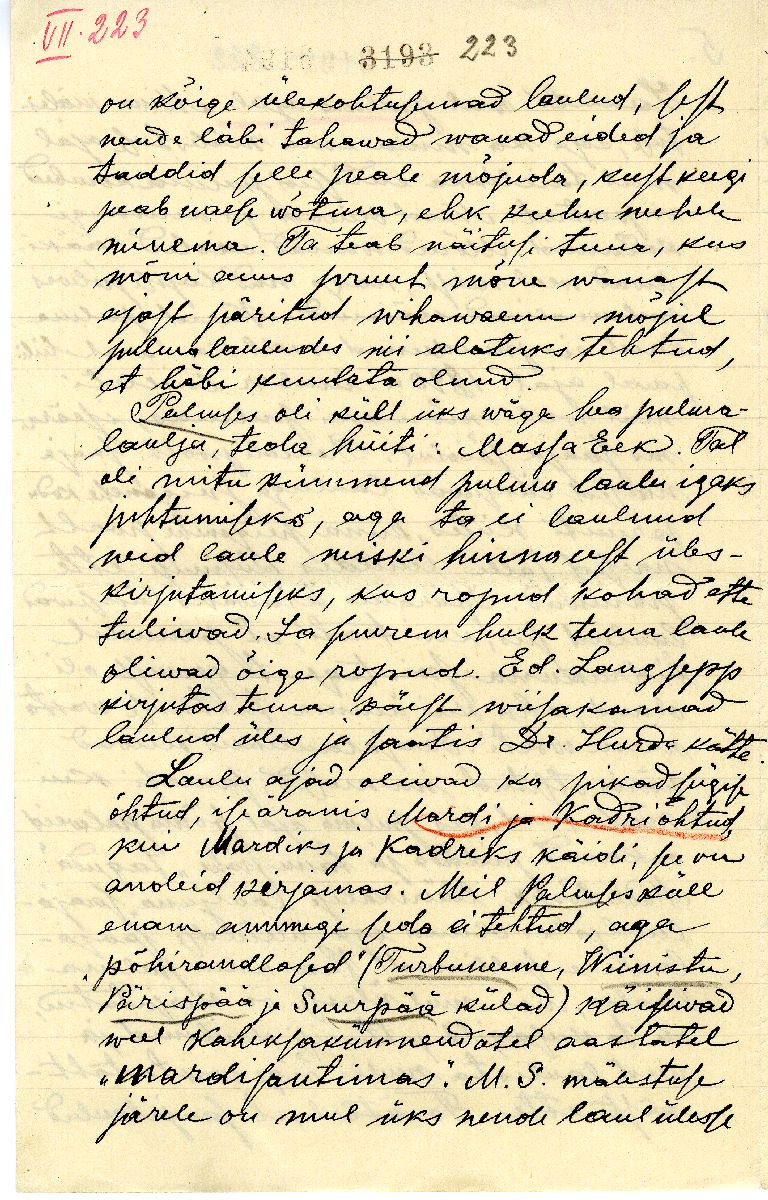 VII. 223
3193 223
on kõige ülekohtusemad laulud, sest
nende läbi tahawad wanad eided ja
taadid selle peale mõjuda, kust keegi
peab naese wõtma, ehk kuhu mehele
minema. Ta teab näitusi tuua, kus
mõni aus pruut mõne wanast
ajast päritud wihawaenu mõjul
pulmalauludes nii alatuks tehtud,
et häbi kuulata olnud.
Palmses oli küll üks wäga hea pulma-
laulja, teda hüiti: Massa Eek. Tal
oli mitu kümmend pulma laulu igaks
juhtumiseks, aga ta ei laulnud
neid laule miski hinna eest üles-
kirjutamiseks, kus ropud kohad ette
tuliwad. Ja suurem hulk tema laule
oliwad õige ropud. Ed. Langsepp
kirjutas tema käest wiisakamad
laulud üles ja saatis Dr. Hurda kätte.
Laulu ajad oliwad ka pikad sügise
õhtud, iseäranis Mardi ja Kadri õhtud,
kui Mardiks ja Kadriks käidi, see on
andeid kerjamas. Meil Palmses küll
enam ammugi seda ei tehtud, aga
„põhirandlased" (Turbuneeme, Wiinistu,
Pärispää ja Suurpää külad) käisiwad
weel kaheksakümnendatel aastatel
„mardisantimas". M. S. mälestuse
järele on mul üks nende laul ülesse